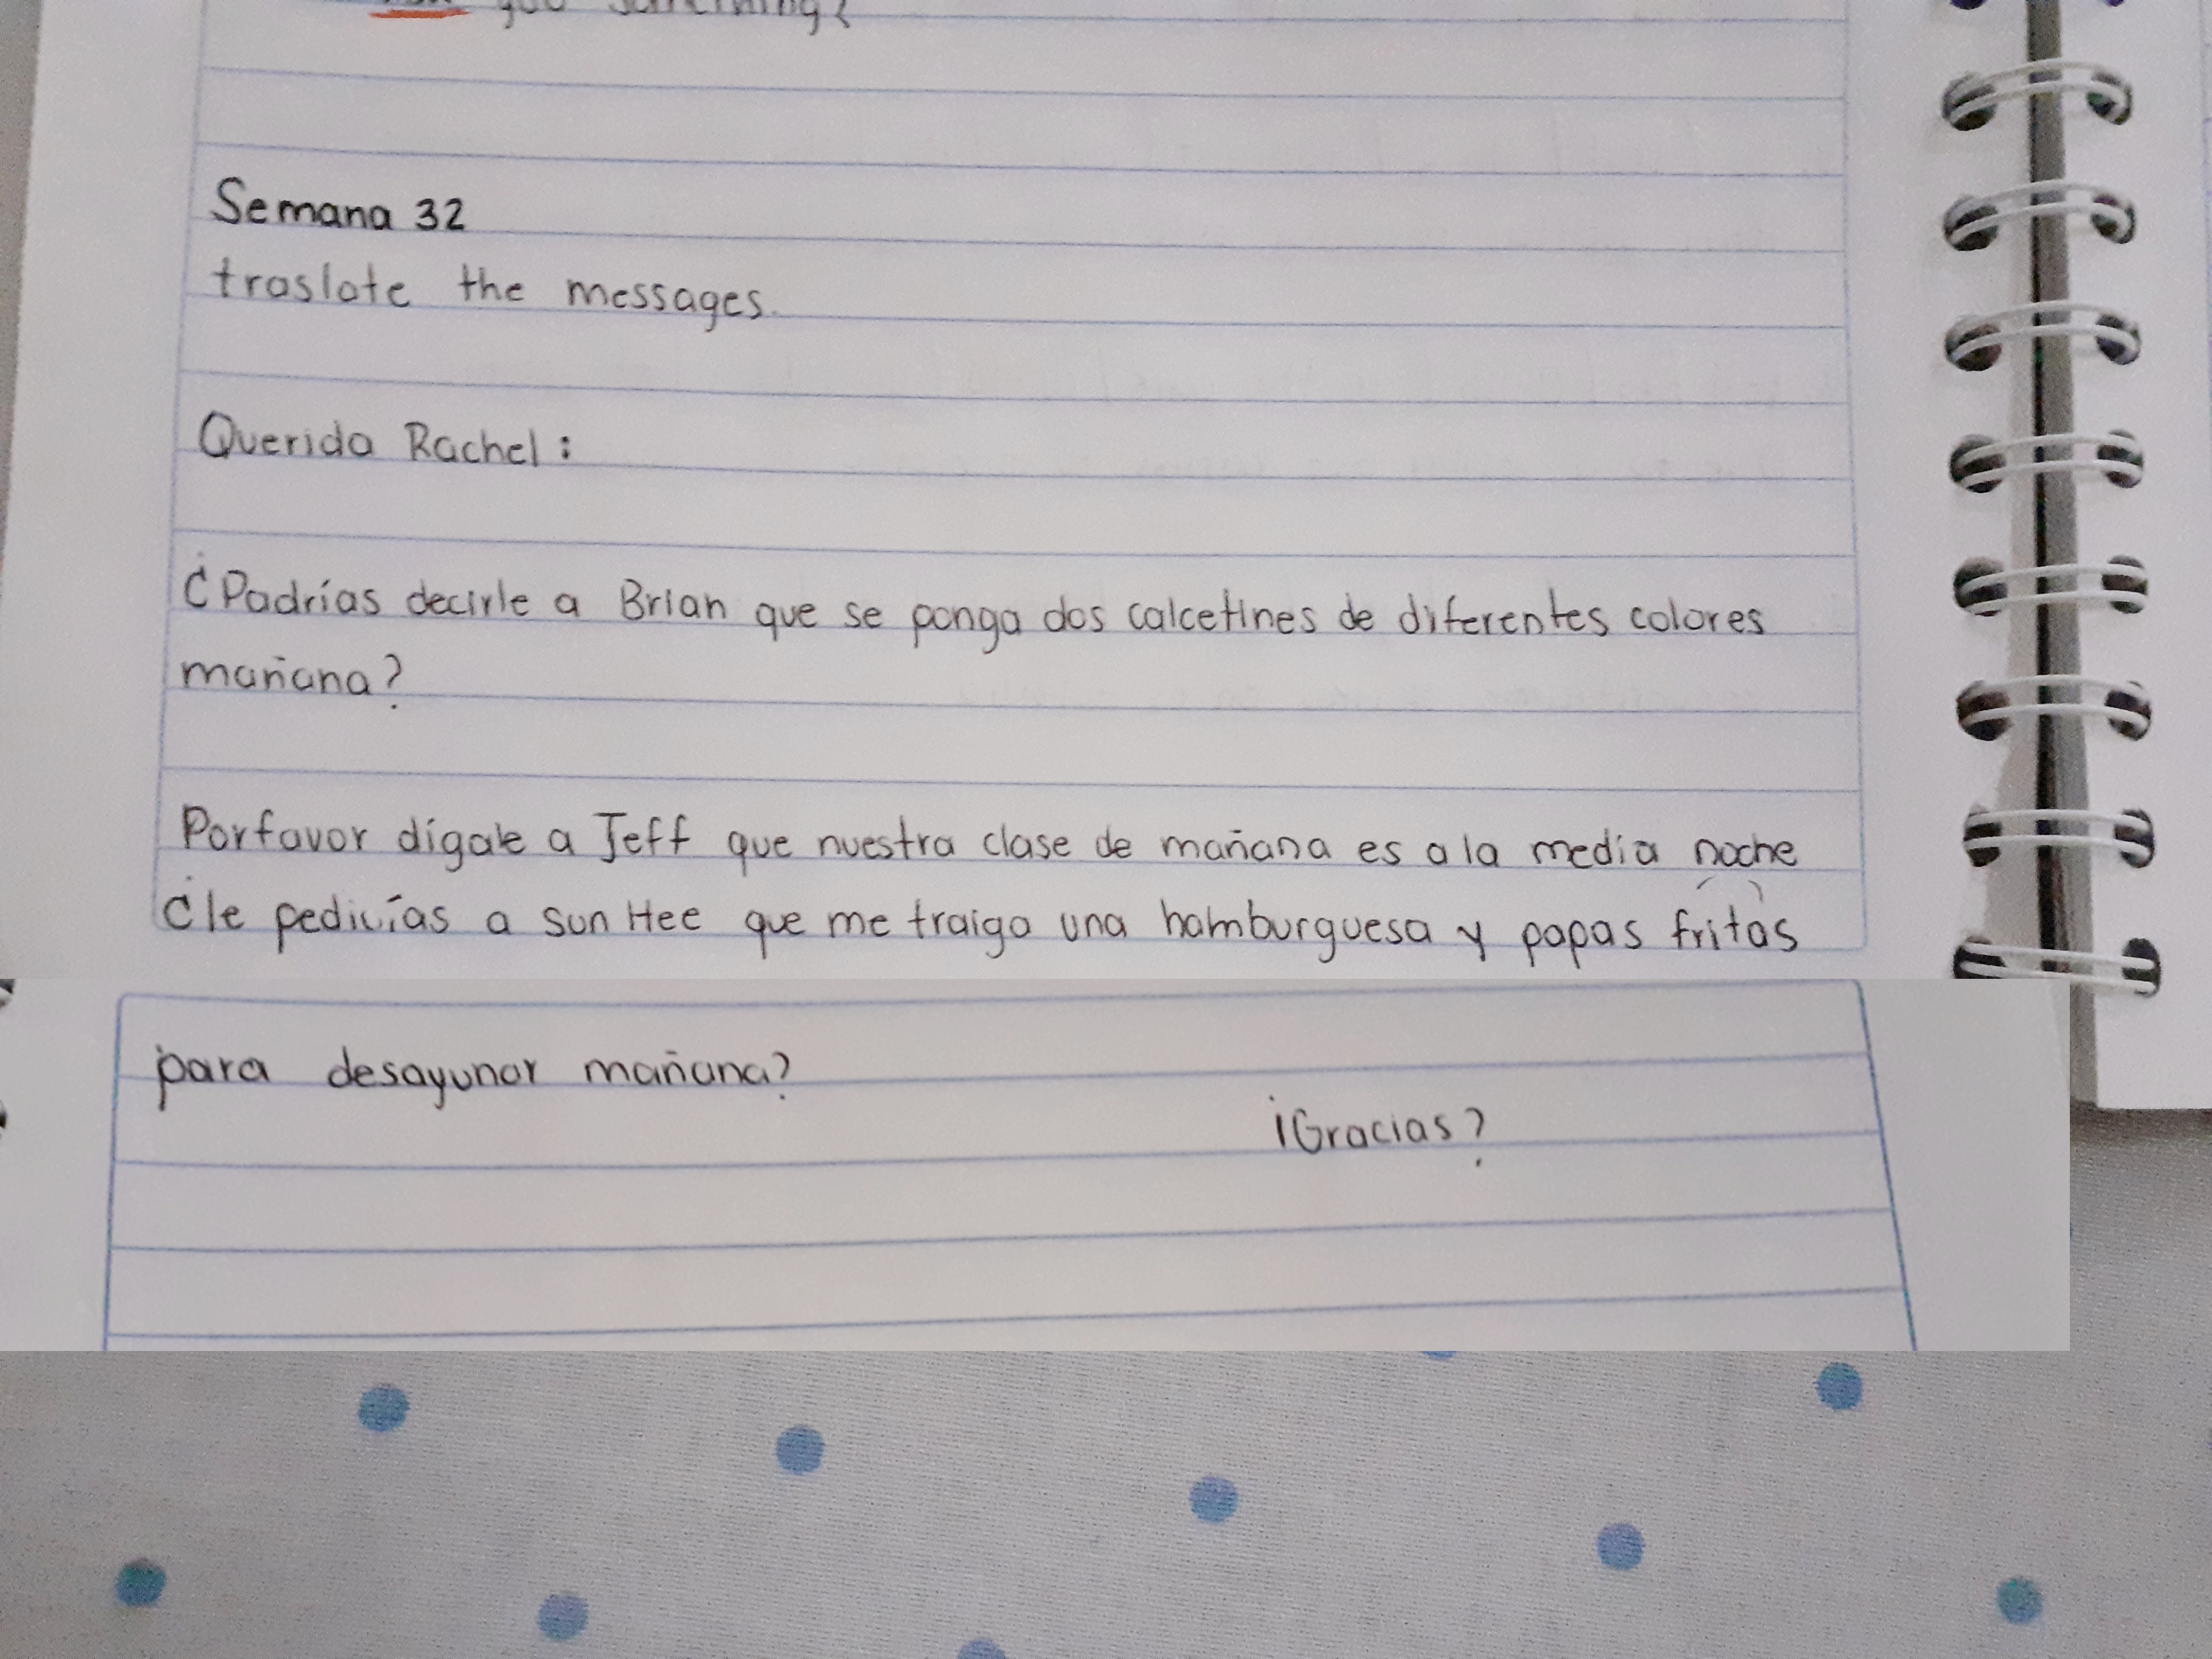 you something?
Semana 32
traslate the messages.
Querida Rachel:
¿Padrías decirle a Brian que se ponga dos calcetines de diferentes colores
mañana?
Porfavor dígale a Jeff que nuestra clase de mañana es a la media noche
¿le pedirías a sun Hee que me traiga una hamburguesa y papas fritas
para desayunar mañana?
¡Gracias?